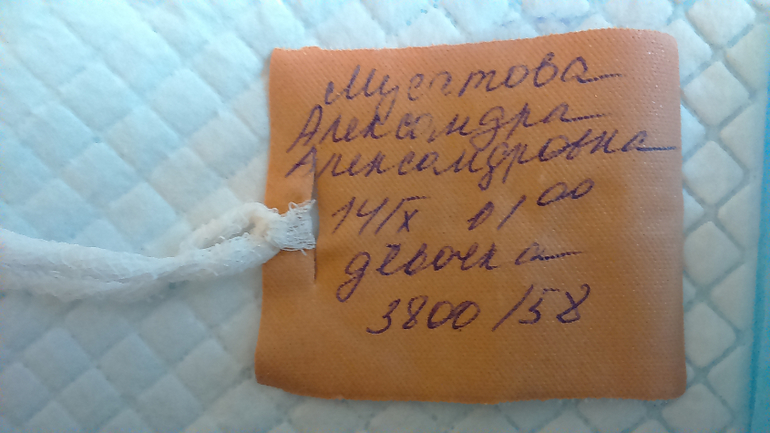 Мусатова
Александра
Александровна
14/IX 01 00
девочка
3800/58